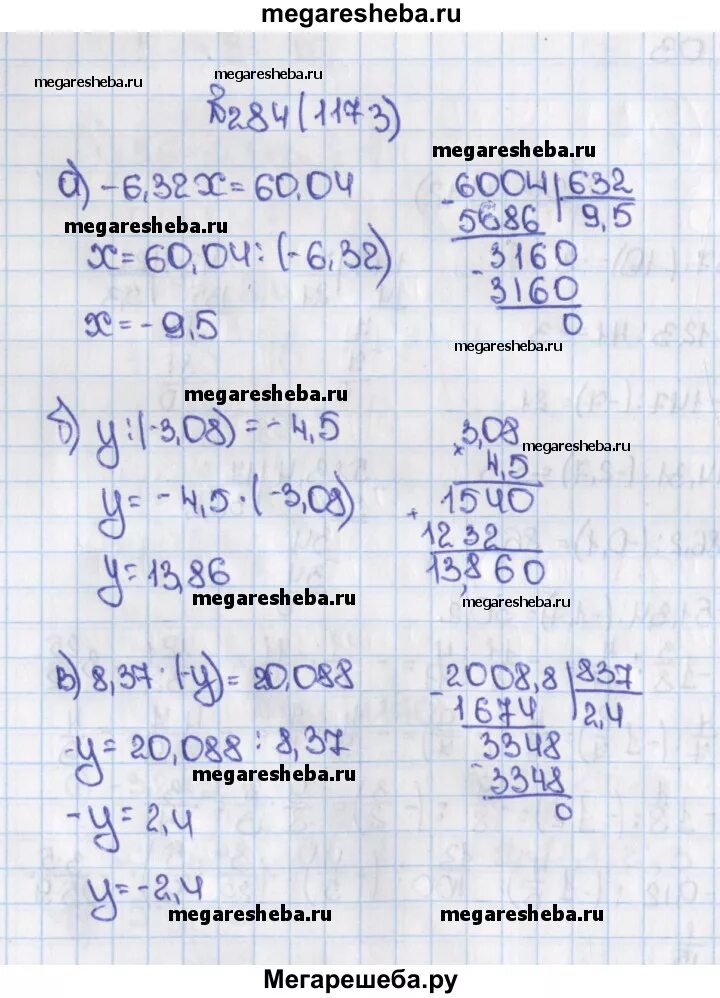 megaresheba.ru
megaresheba.ru
megaresheba.ru
№284(1173)
megaresheba.ru
а) -6,32x=60,04
-6004 632
5686 9,5
megaresheba.ru
x=60,04:(-6,32)
-3160
3160
x=-9,5
0
megaresheba.ru
megaresheba.ru
б) y:(-3,08)=-4,5
3,08
megaresheba.ru
× 4,5
y=-4,5·(-3,08)
+ 1540
1232
y=13,86
13,860
megaresheba.ru
megaresheba.ru
в) 8,37·(-y)=20,088
-2008,8 837
1674 2,4
-y=20,088:8,37
-3348
megaresheba.ru
3348
0
-y=2,4
y=-2,4
megaresheba.ru
megaresheba.ru
Мегарешеба.ру